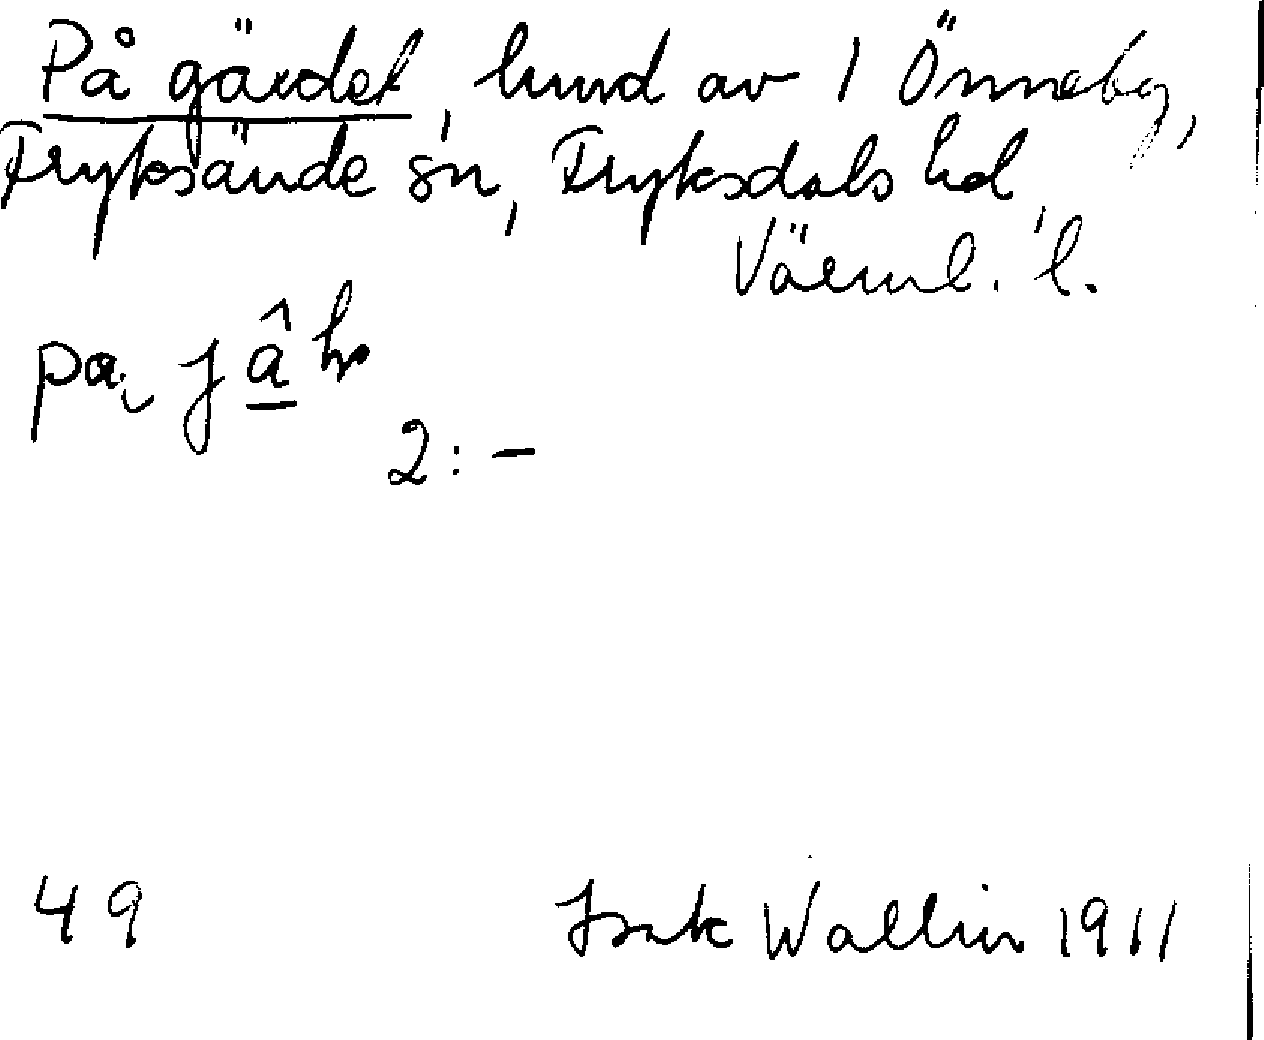 På gärdet, lund av 1 Önneby,
Fryksände sn, Fryksdals hd,
Värml. l.
pa, jâ
2:-
49 Isak Wallin 1911